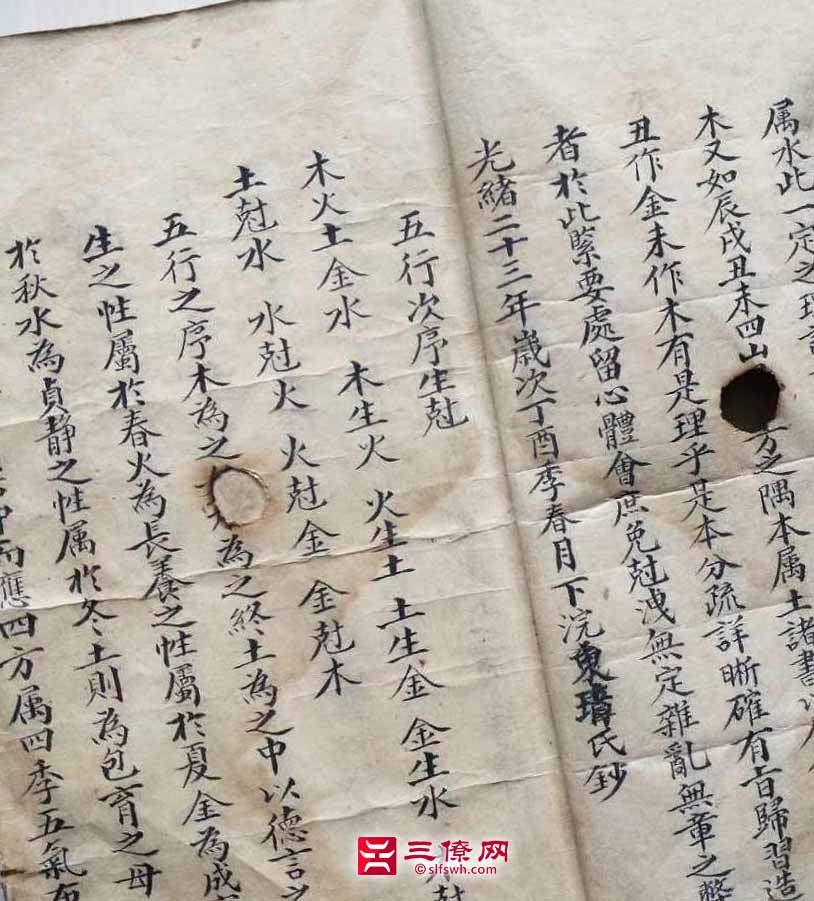 属水此一定之理
木又如辰戌丑未四山
方之隅本属土諸書
丑作金未作木有是理乎是本分疏詳晰確有旨歸習造
者於此緊要處留心體會庶免尅洩無定雜亂無章之弊
光緒二十三年歲次丁酉季春月下浣東璋氏鈔
五行次序生尅
木火土金水 木生火 火生土 土生金 金生水
土尅水 水尅火 火尅金 金尅木
五行之序木為之
為之終土為之中以德言之
生之性屬於春火為長養之性屬於夏金為成
於秋水為貞靜之性属於冬土則為包育之母
中而應四方属四季五氣
三僚网
©slfswh.com